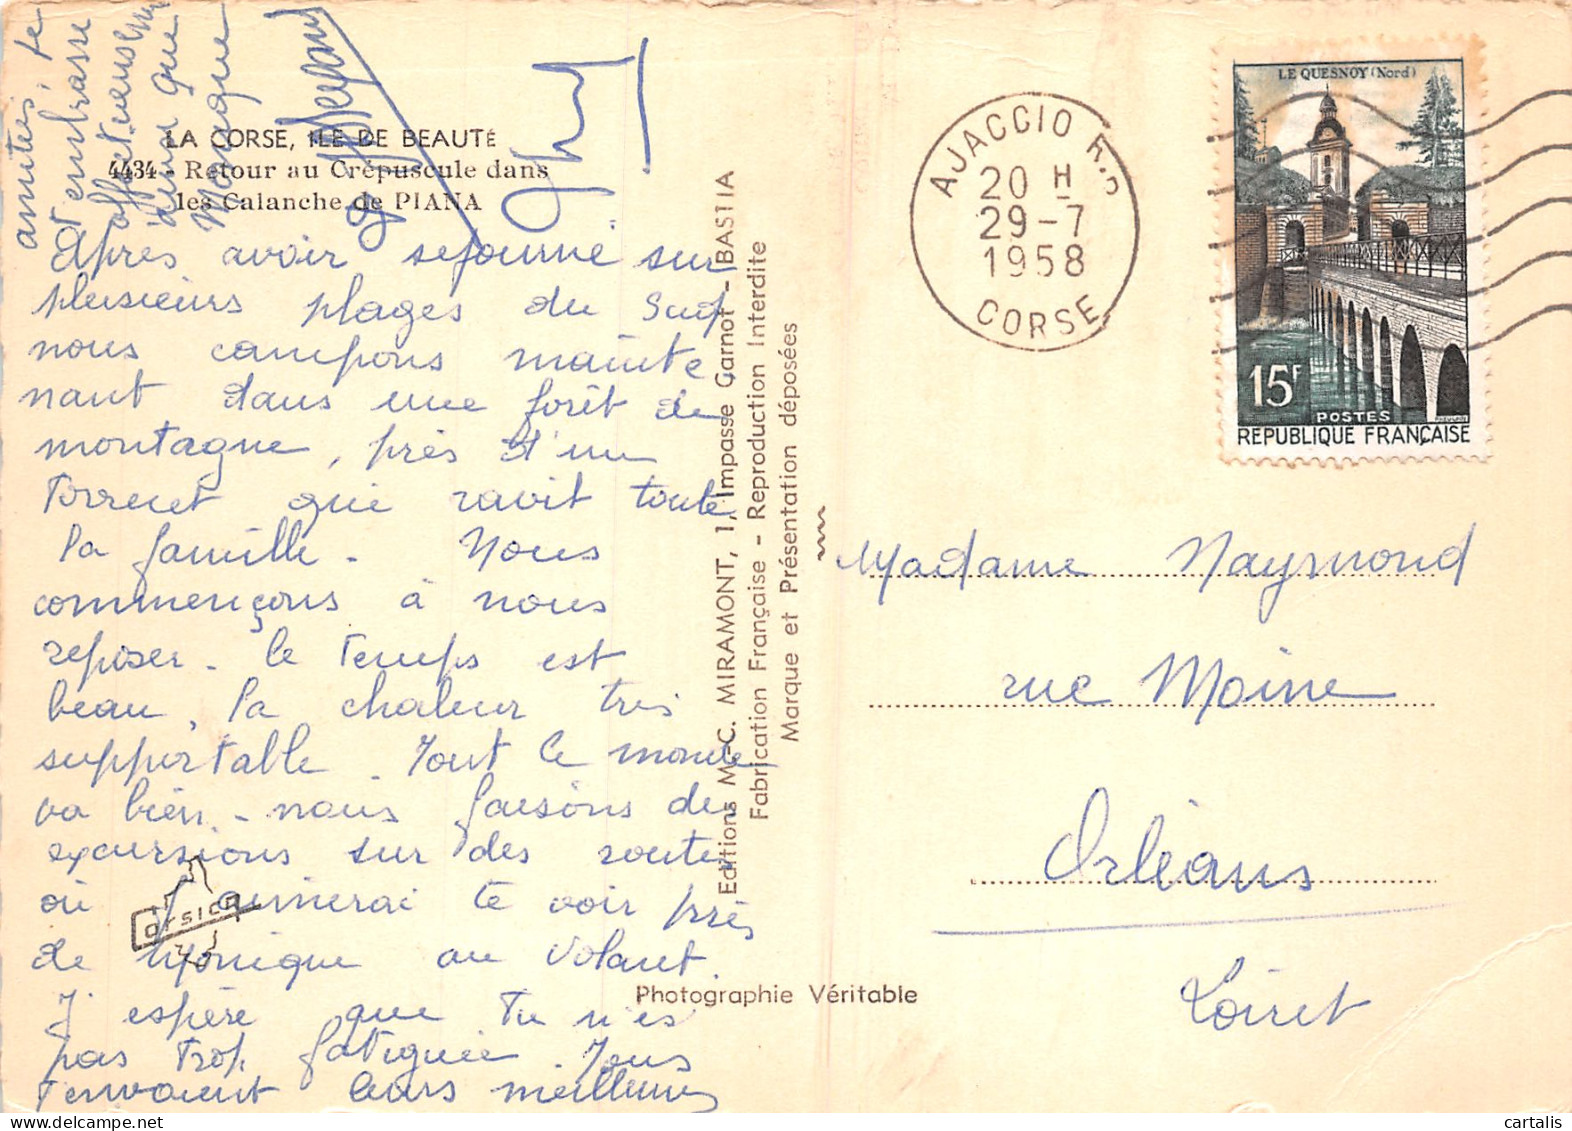 LA CORSE, ILE DE BEAUTÉ
4434 - Retour au Crépuscule dans
les Calanche de PIANA
Après avoir séjourné sur
plusieurs plages du Sud
nous campons mainte
nant dans une forêt de
montagne, près d'un
torrent qui ravit toute
la famille - Nous
commençons à nous
reposer - le temps est
beau, la chaleur très
supportable. Tout le monde
va bien - nous faisons des
excursions sur des routes
où j'aimerai te voir près
de Monique au volant.
J'espère que tu n'es
pas trop fatiguée. Tous
t'envoient leurs meilleures
amitiés, je
t'embrasse
affectueusement
ainsi que
Monique
CORSICA
Editions M.-C. MIRAMONT, 1, Impasse Garnot - BASTIA
Fabrication Française - Reproduction Interdite
Marque et Présentation déposées
Photographie Véritable
AJACCIO R.P.
20 H
29-7
1958
CORSE
LE QUESNOY (Nord)
15F
POSTES
REPUBLIQUE FRANÇAISE
Madame Raymond
rue Moine
Orléans
Loiret
cartalis